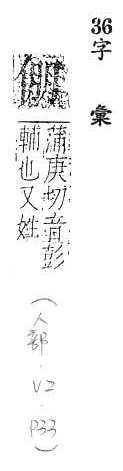 36字彙
蒲庚切音彭
輔也又姓
(人部.V2.P33)